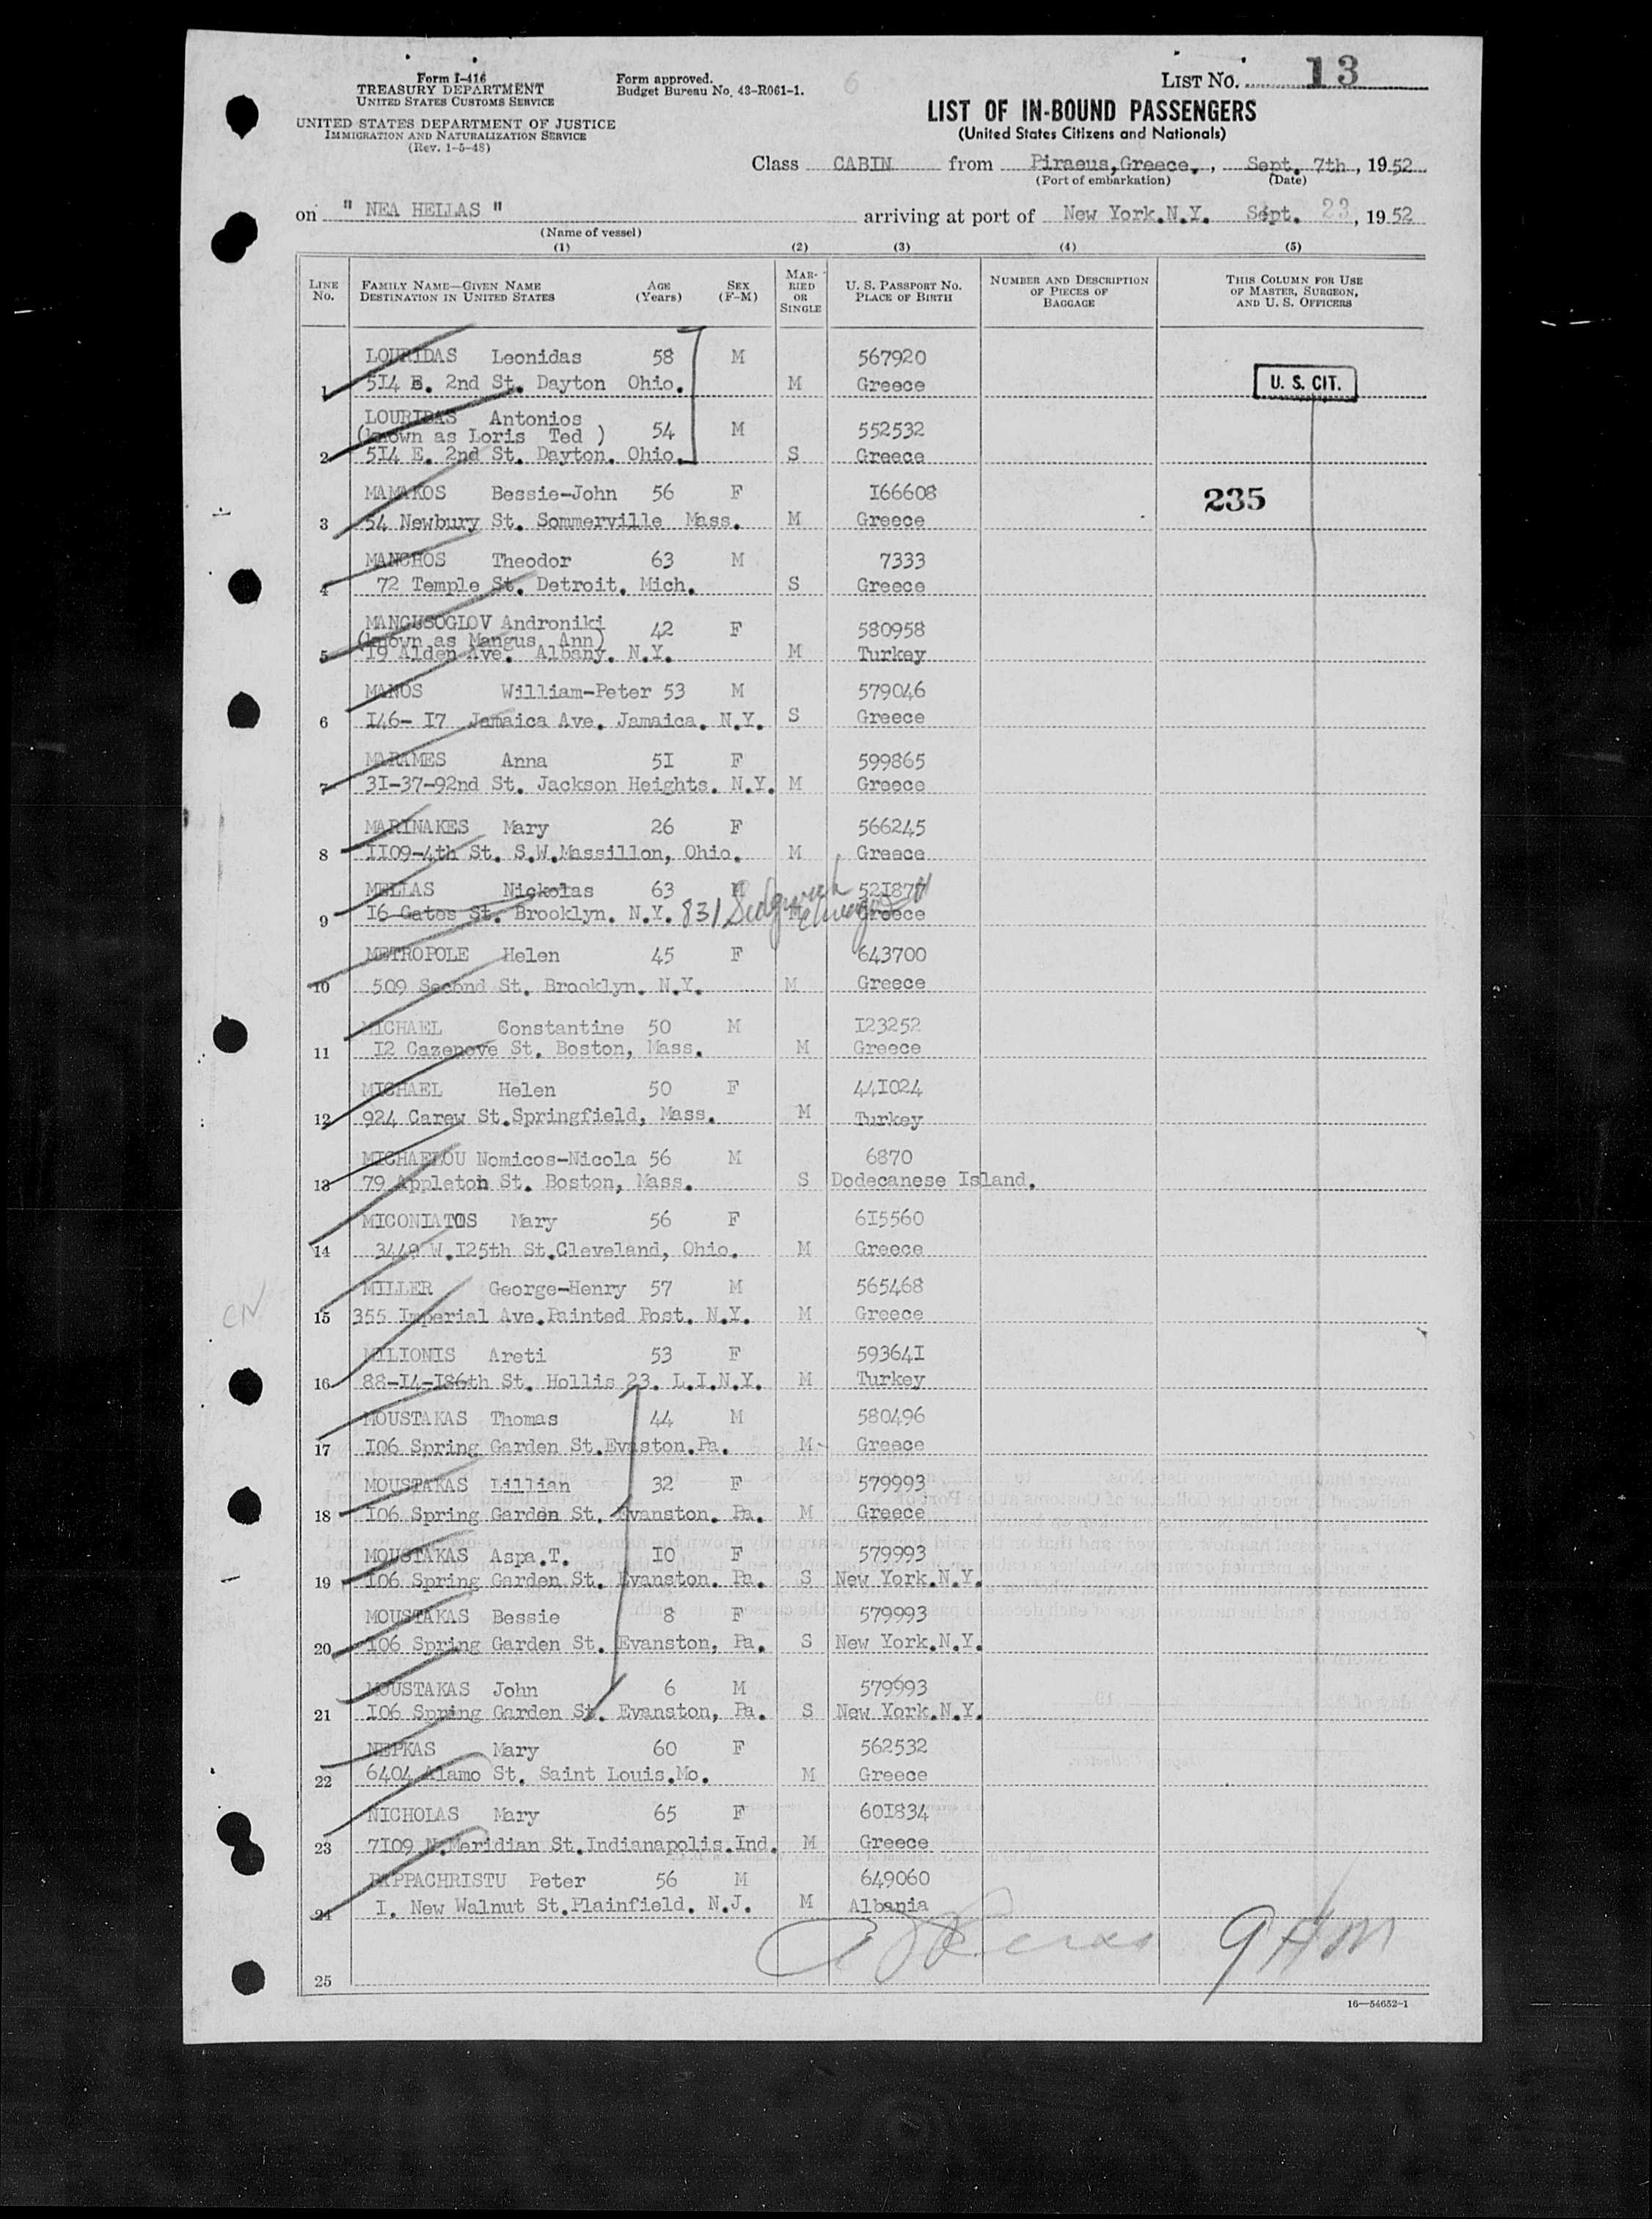 Form I-416
TREASURY DEPARTMENT
UNITED STATES CUSTOMS SERVICE
UNITED STATES DEPARTMENT OF JUSTICE
IMMIGRATION AND NATURALIZATION SERVICE
(Rev. 1-5-48)
Form approved.
Budget Bureau No. 43-R061-1.
6
LIST NO. 13
LIST OF IN-BOUND PASSENGERS
(United States Citizens and Nationals)
Class CABIN from Piraeus,Greece. , Sept. 7th, 1952
(Port of embarkation) (Date)
on " NEA HELLAS " arriving at port of New York.N.Y. Sept. 23, 1952
(Name of vessel)
(1) (2) (3) (4) (5)
LINE No. FAMILY NAME—GIVEN NAME DESTINATION IN UNITED STATES AGE (Years) SEX (F-M) MARRIED OR SINGLE U. S. PASSPORT NO. PLACE OF BIRTH NUMBER AND DESCRIPTION OF PIECES OF BAGGAGE THIS COLUMN FOR USE OF MASTER, SURGEON, AND U. S. OFFICERS
LOURIDAS Leonidas 58 M 567920
1 514 E. 2nd St. Dayton Ohio. M Greece U. S. CIT.
LOURIDAS Antonios
(known as Loris Ted ) 54 M 552532
2 514 E. 2nd St. Dayton. Ohio. S Greece
MAMAKOS Bessie-John 56 F I66608 235
3 54 Newbury St. Sommerville Mass. M Greece
MANCHOS Theodor 63 M 7333
4 72 Temple St. Detroit. Mich. S Greece
MANGUSOGLOV Androniki
(known as Mangus Ann) 42 F 580958
5 I9 Alden Ave. Albany. N.Y. M Turkey
MANOS William-Peter 53 M 579046
6 I46- I7 Jamaica Ave. Jamaica. N.Y. S Greece
MARAMES Anna 5I F 599865
7 3I-37-92nd St. Jackson Heights. N.Y. M Greece
MARINAKES Mary 26 F 566245
8 II09-4th St. S.W.Massillon, Ohio. M Greece
MELLAS Nickolas 63 M 52I87
9 I6 Gates St. Brooklyn. N.Y. 831 Sedgwick Chicago M Greece
METROPOLE Helen 45 F 643700
10 509 Second St. Brooklyn. N.Y. M Greece
MICHAEL Constantine 50 M I23252
11 I2 Cazenove St. Boston, Mass. M Greece
MICHAEL Helen 50 F 44I024
12 924 Carew St.Springfield, Mass. M Turkey
MICHAELOU Nomicos-Nicola 56 M 6870
13 79 Appleton St. Boston, Mass. S Dodecanese Island.
MICONIATOS Mary 56 F 6I5560
14 3449 W.I25th St.Cleveland, Ohio. M Greece
MILLER George-Henry 57 M 565468
CN
15 355 Imperial Ave.Painted Post. N.Y. M Greece
MILIONIS Areti 53 F 59364I
16 88-I4-I86th St. Hollis 23. L.I.N.Y. M Turkey
MOUSTAKAS Thomas 44 M 580496
17 I06 Spring Garden St.Evanston.Pa. M Greece
MOUSTAKAS Lillian 32 F 579993
18 I06 Spring Garden St. Evanston. Pa. M Greece
MOUSTAKAS Aspa.T. I0 F 579993
19 I06 Spring Garden St. Evanston. Pa. S New York.N.Y.
MOUSTAKAS Bessie 8 F 579993
20 I06 Spring Garden St. Evanston, Pa. S New York.N.Y.
MOUSTAKAS John 6 M 579993
21 I06 Spring Garden St. Evanston, Pa. S New York.N.Y.
NEPKAS Mary 60 F 562532
22 6404 Alamo St. Saint Louis.Mo. M Greece
NICHOLAS Mary 65 F 60I834
23 7I09 N.Meridian St.Indianapolis.Ind. M Greece
PAPPACHRISTU Peter 56 M 649060
24 I. New Walnut St.Plainfield. N.J. M Albania
9 AM
25
16—54652-1